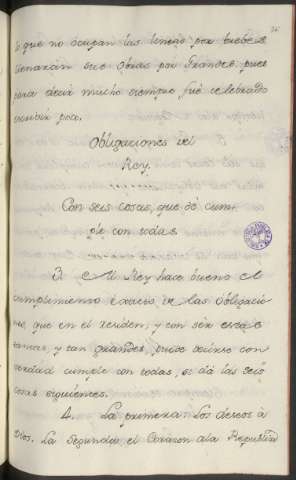 lo que no ocupan las lineas por breves
llenarán sus obras por grandes, pues
para decir mucho siempre fué celebrado
escribir poco.
Obligaciones del
Rey.
Con seis cosas, que dé cum-
ple con todas
3. Al Rey hace bueno el
cumplimiento exacto de las obligacio
nes, que en el residen, y con ser estas
tantas, y tan grandes, puede decirse con
verdad cumple con todas, si dá las seis
cosas siguientes.
4. La primera: Los deseos à
Dios. La Segunda el Corazon ala Republica